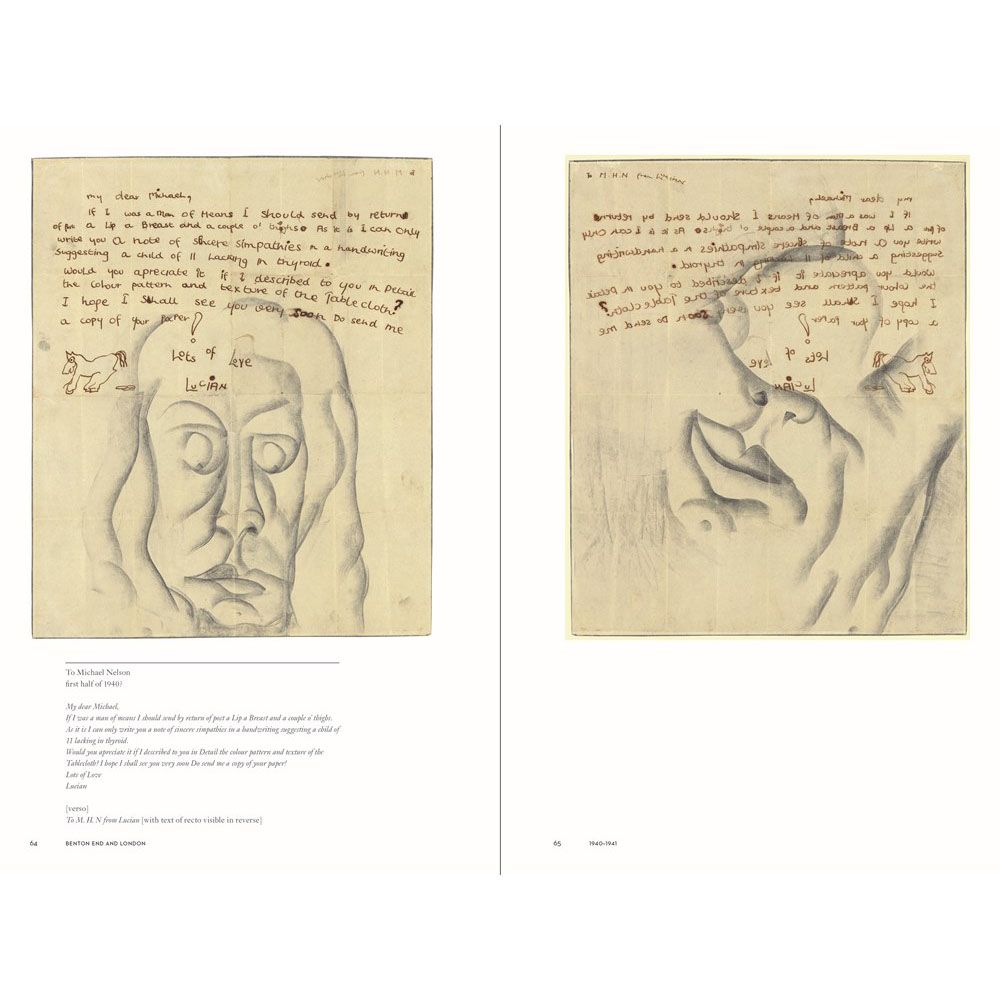 my dear Michael,
If I was a Man of Means I should send by return
of post a Lip a Breast and a couple o' thighs. As it is I can Only
write you a note of sincere Simpathies in a handwriting
suggesting a child of 11 Lacking in thyroid.
Would you apreciate it if I described to you in Detail
the colour pattern and texture of the Tablecloth?
I hope I shall see you very soon Do send me
a copy of your Paper!
Lots of Love
LUCIAN
To Michael Nelson
first half of 1940?
My dear Michael,
If I was a man of means I should send by return of post a Lip a Breast and a couple o' thighs.
As it is I can only write you a note of sincere simpathies in a handwriting suggesting a child of
11 lacking in thyroid.
Would you apreciate it if I described to you in Detail the colour pattern and texture of the
Tablecloth? I hope I shall see you very soon Do send me a copy of your paper!
Lots of Love
Lucian
[verso]
To M. H. N from Lucian [with text of recto visible in reverse]
64 BENTON END AND LONDON
To M.H.N from Lucian
65 1940–1941